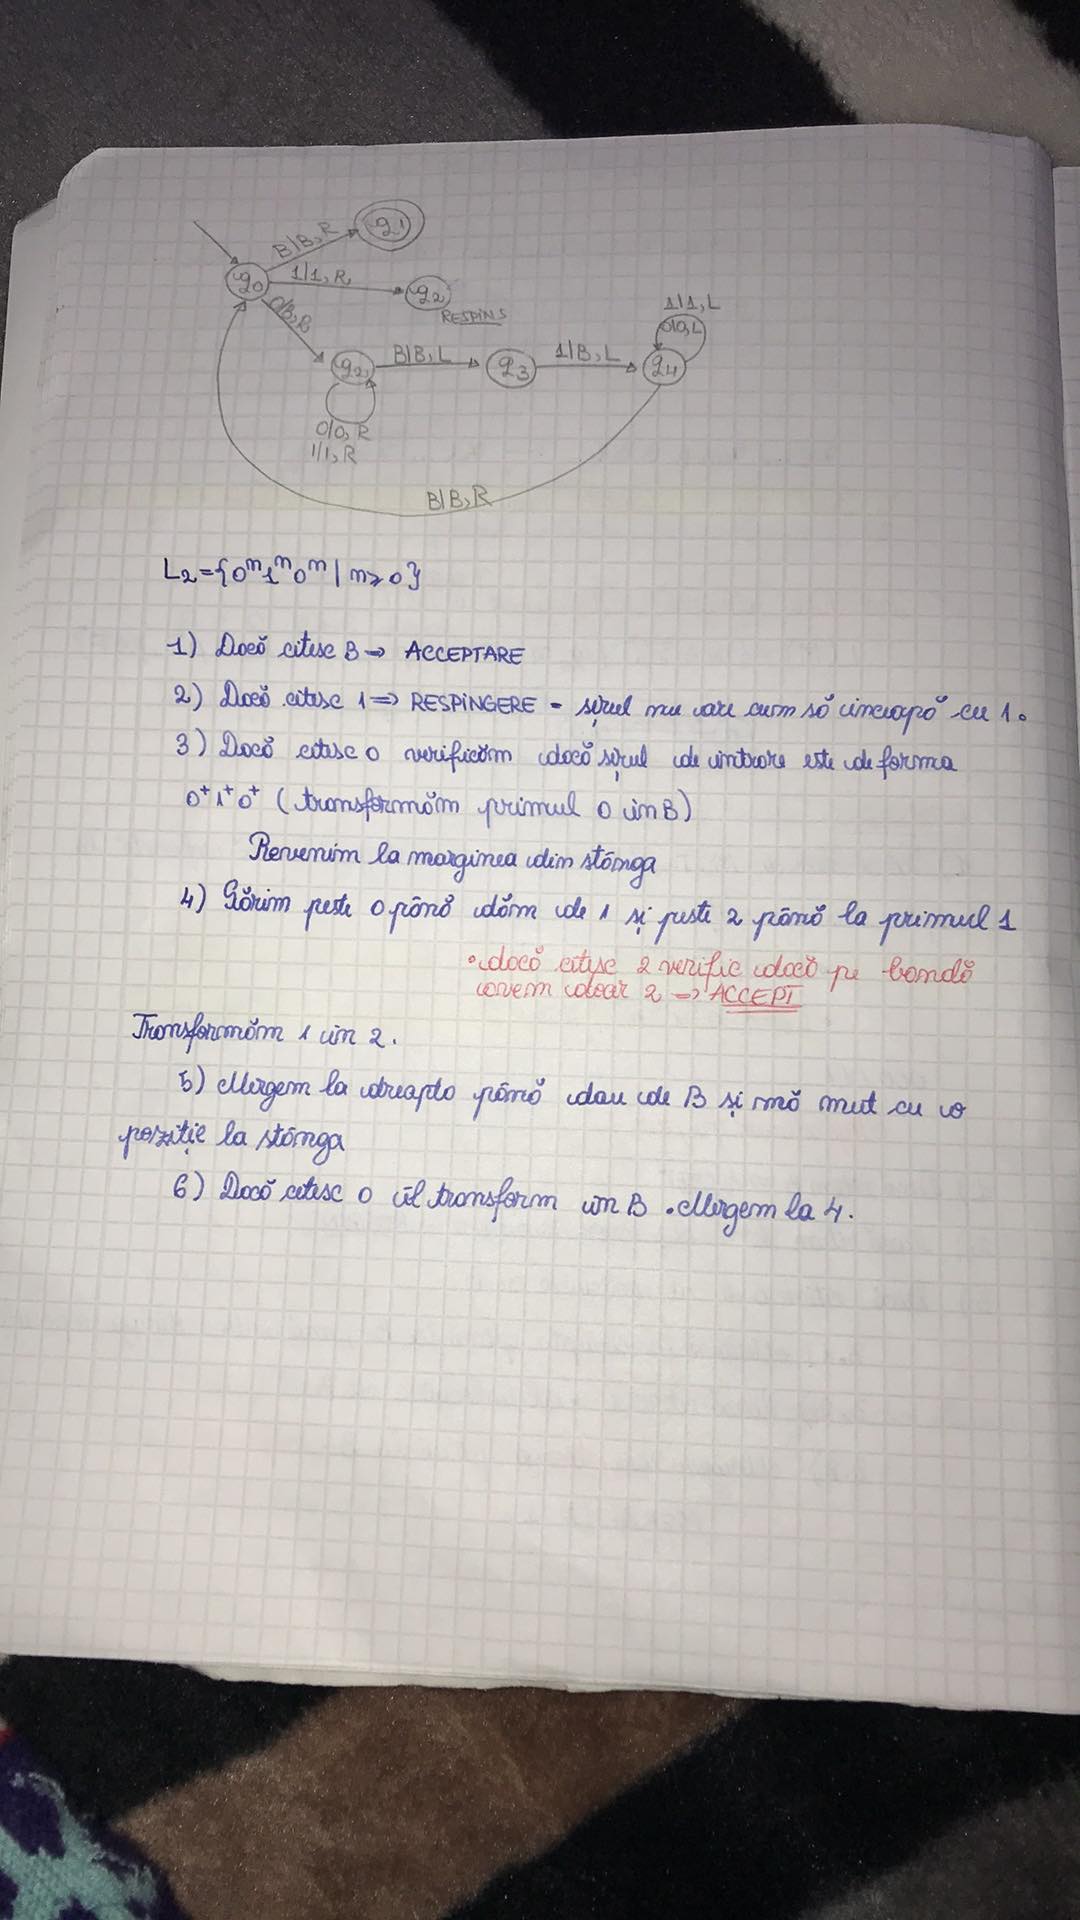 B|B, R
q1
q0
1|1, R
q2
RESPINS
0|B, R
q2
B|B, L
q3
1|B, L
q4
1|1, L
0|0, L
0|0, R
1|1, R
B|B, R
L2={0ⁿ1ⁿ0ⁿ | n⩾0}
1) Dacă citesc B → ACCEPTARE
2) Dacă citesc 1 => RESPINGERE - șirul nu are cum să înceapă cu 1.
3) Dacă citesc 0 verificăm dacă șirul de intrare este de forma
0⁺1⁺0⁺ (transformăm primul 0 în B)
Revenim la marginea din stânga
4) Sărim peste 0 până dăm de 1 și peste 2 până la primul 1
• dacă citesc 2 verific dacă pe bandă
avem doar 2 => ACCEPT
Transformăm 1 în 2.
5) Mergem la dreapta până dau de B și mă mut cu o
poziție la stânga
6) Dacă citesc 0 îl transform în B. Mergem la 4.